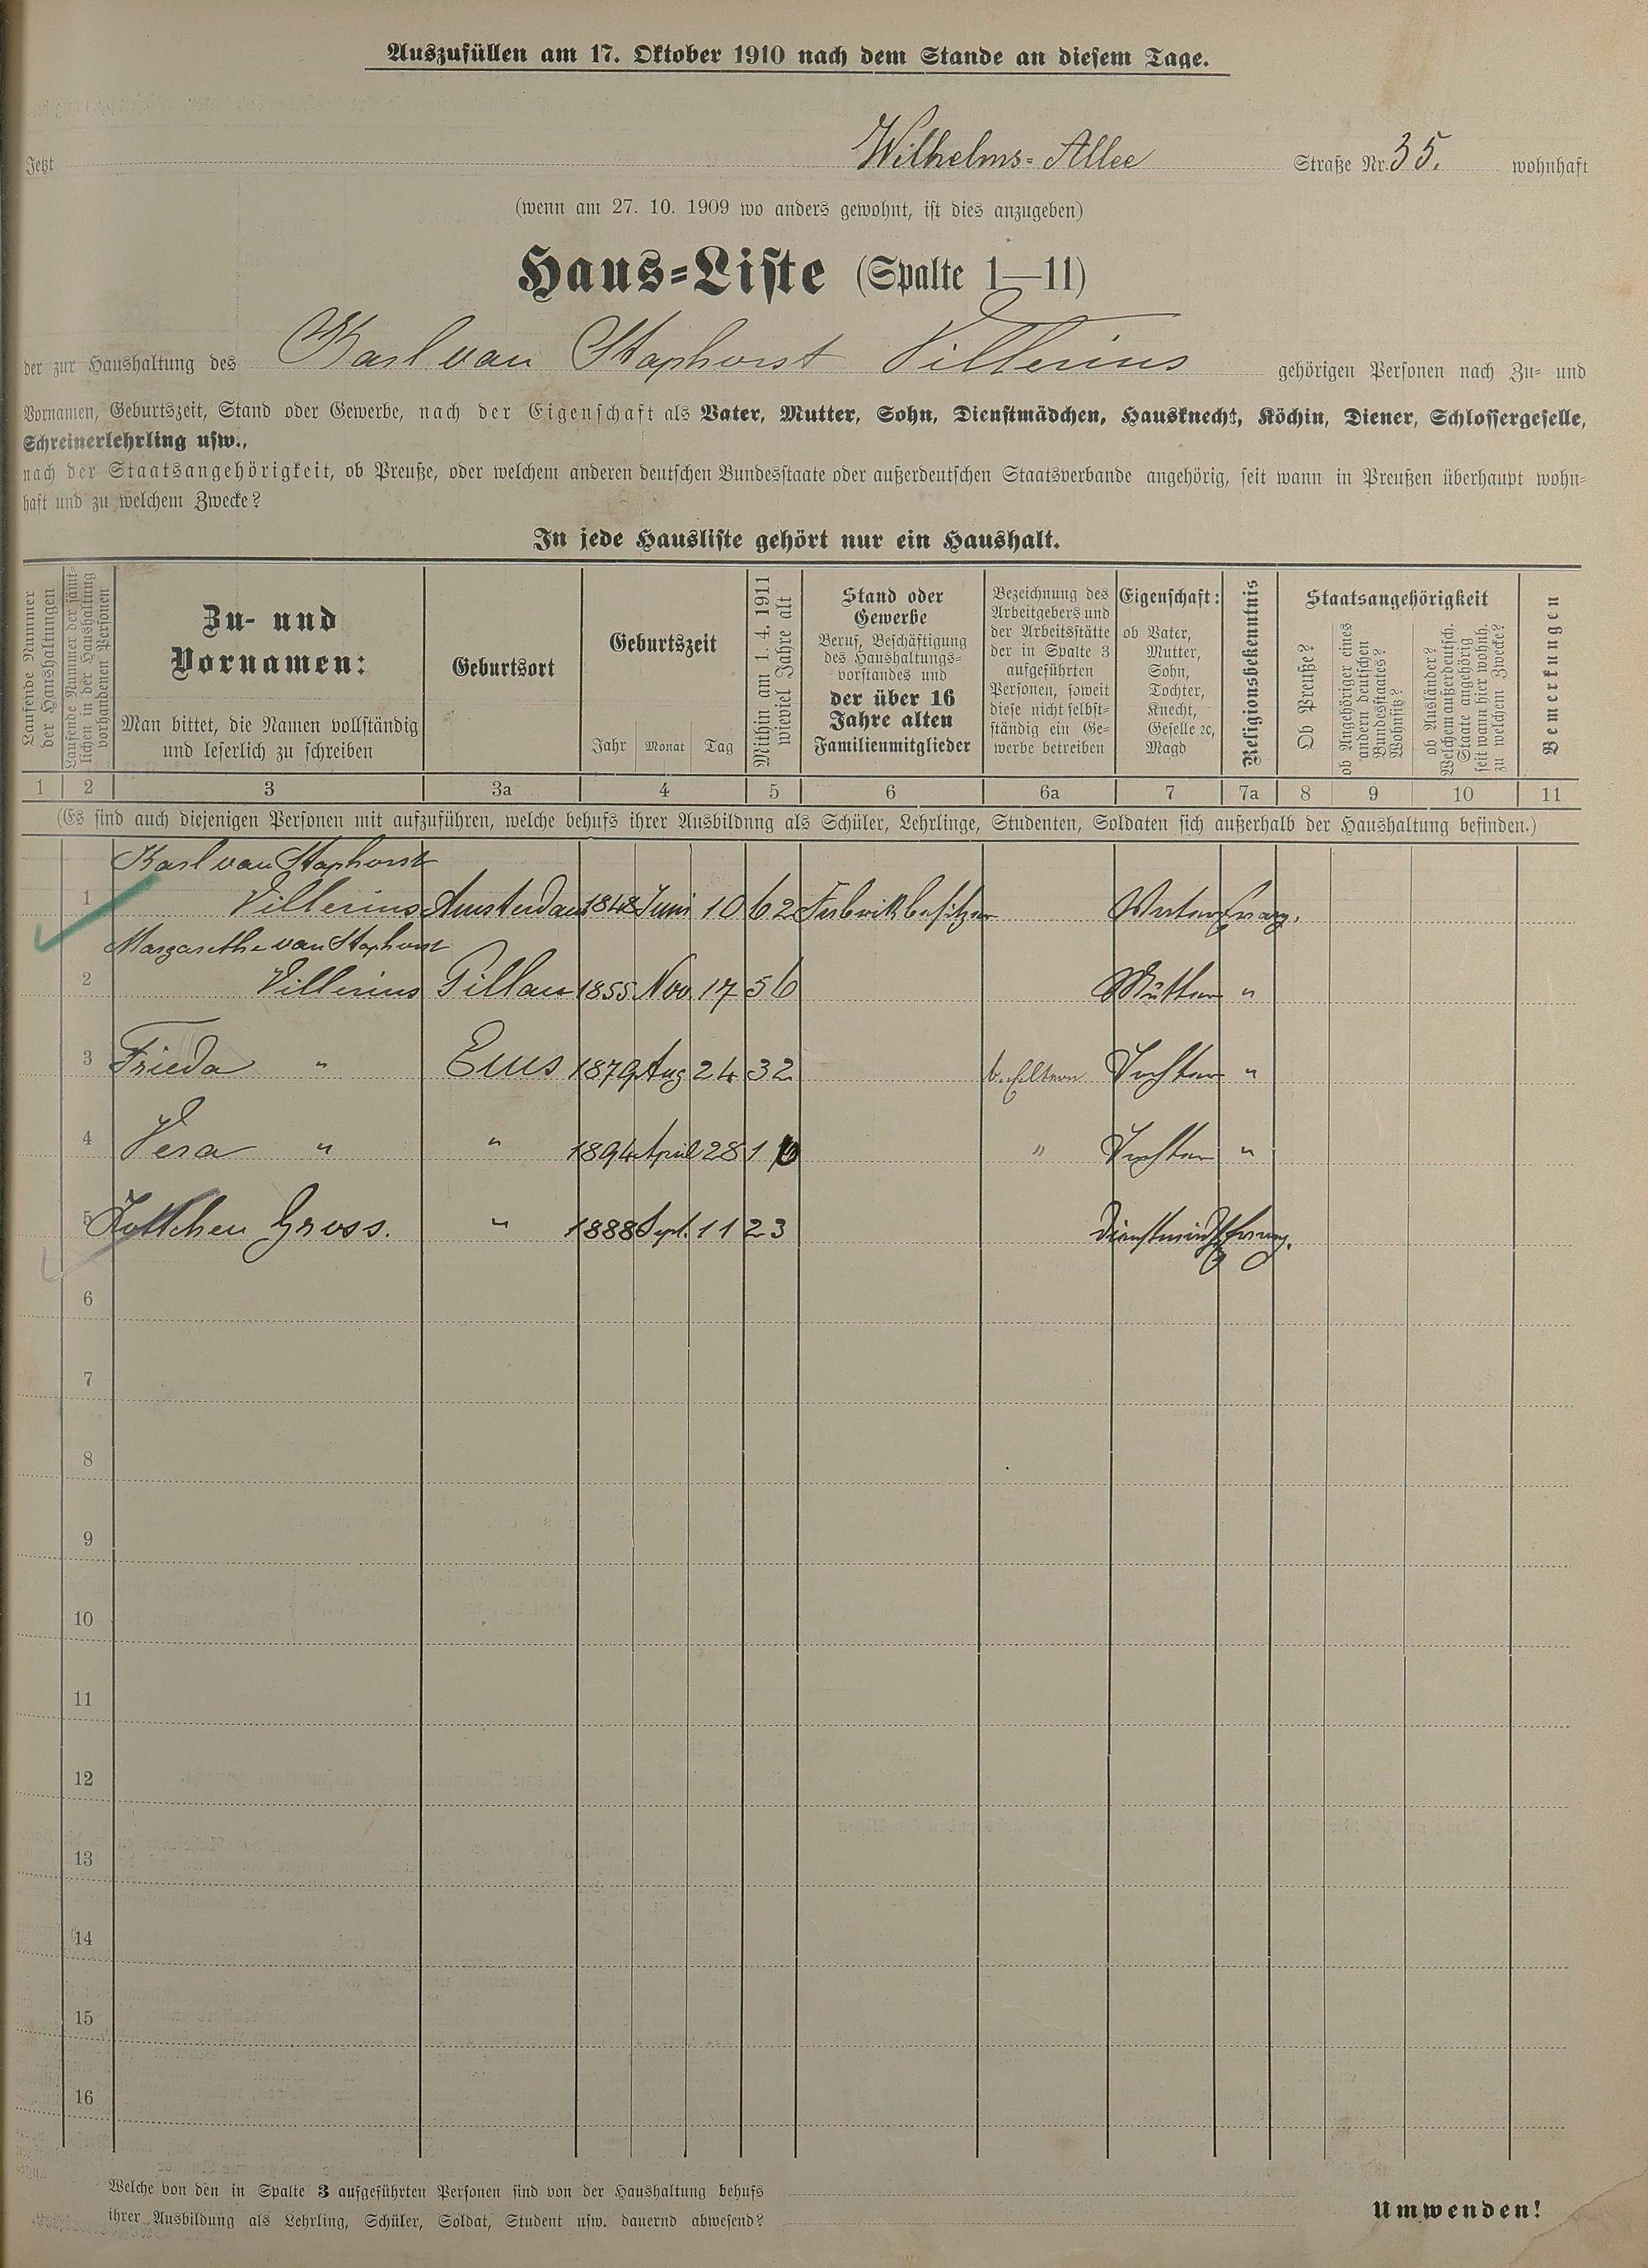 Auszufüllen am 17. Oktober 1910 nach dem Stande an diesem Tage.
Jetzt Wilhelms-Allee Straße Nr. 35. wohnhaft
(wenn am 27. 10. 1909 wo anders gewohnt, ist dies anzugeben)
Haus-Liste (Spalte 1—11)
der zur Haushaltung des Karl van Staphorst Villerius gehörigen Personen nach Zu- und
Vornamen, Geburtszeit, Stand oder Gewerbe, nach der Eigenschaft als Vater, Mutter, Sohn, Dienstmädchen, Hausknecht, Köchin, Diener, Schlossergeselle,
Schreinerlehrling usw.,
nach der Staatsangehörigkeit, ob Preuße, oder welchem anderen deutschen Bundesstaate oder außerdeutschen Staatsverbande angehörig, seit wann in Preußen überhaupt wohn-
haft und zu welchem Zwecke?
In jede Hausliste gehört nur ein Haushalt.
Laufende Nummer
der Haushaltungen
Laufende Nummer der sämt-
lichen in der Haushaltung
vorhandenen Personen
Zu- und
Vornamen:
Man bittet, die Namen vollständig
und leserlich zu schreiben
Geburtsort
Geburtszeit
Jahr Monat Tag
Mithin am 1. 4. 1911
wieviel Jahre alt
Stand oder
Gewerbe
Beruf, Beschäftigung
des Haushaltungs-
vorstandes und
der über 16
Jahre alten
Familienmitglieder
Bezeichnung des
Arbeitgebers und
der Arbeitsstätte
der in Spalte 3
aufgeführten
Personen, soweit
diese nicht selbst-
ständig ein Ge-
werbe betreiben
Eigenschaft:
ob Vater,
Mutter,
Sohn,
Tochter,
Knecht,
Geselle ꝛc,
Magd
Religionsbekenntnis
Staatsangehörigkeit
Ob Preuße?
ob Angehöriger eines
andern deutschen
Bundesstaates?
Wohnsitz?
ob Ausländer?
Welchem außerdeutsch.
Staate angehörig
seit wann hier wohnh.
zu welchem Zwecke?
Bemerkungen
1 2 3 3a 4 5 6 6a 7 7a 8 9 10 11
(Es sind auch diejenigen Personen mit aufzuführen, welche behufs ihrer Ausbildung als Schüler, Lehrlinge, Studenten, Soldaten sich außerhalb der Haushaltung befinden.)
Karl van Staphorst
1 Villerius Amsterdam 1848 Juni 10 62 Fabrikbesitzer Vater evang.
Margarethe van Staphorst
2 Villerius Pillau 1855 Nov 17 56 Mutter "
3 Frieda " Ems 1879 Aug 24 32 b. Eltern Tochter "
4 Vera " " 1894 April 28 16 " Tochter "
5 Gross. " 1888 Sept. 11 23 Dienstmädch evang.
6
7
8
9
10
11
12
13
14
15
16
Welche von den in Spalte 3 aufgeführten Personen sind von der Haushaltung behufs
ihrer Ausbildung als Lehrling, Schüler, Soldat, Student usw. dauernd abwesend?
Umwenden!